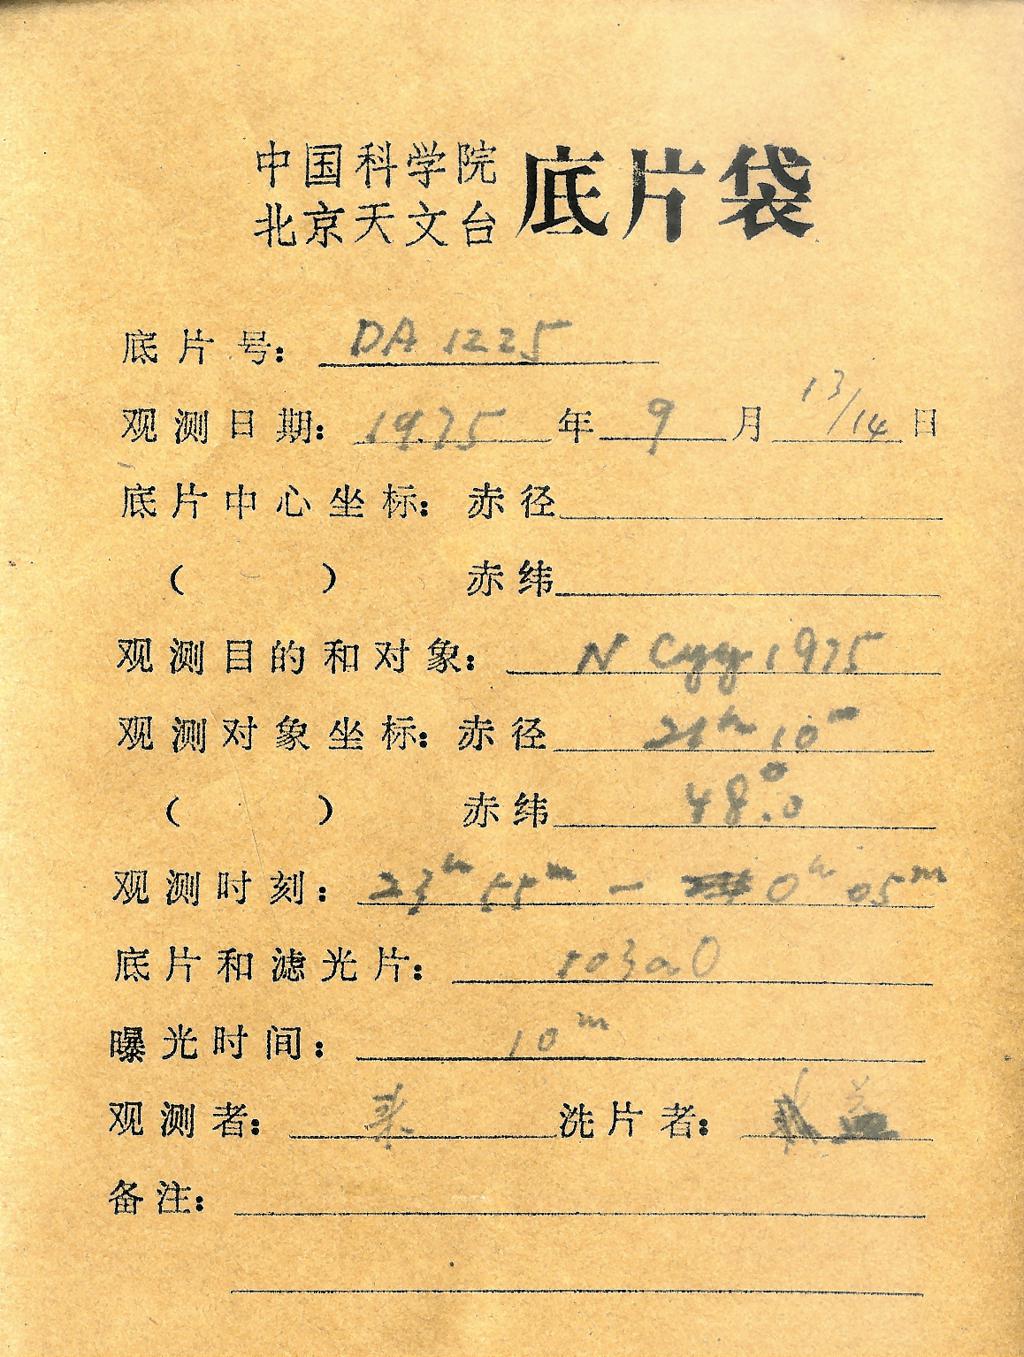 中国科学院
北京天文台 底片袋
底片号: DA 1225
观测日期: 1975 年 9 月 13/14 日
底片中心坐标: 赤径
( ) 赤纬
观测目的和对象: N Cyg 1975
观测对象坐标: 赤径 21ʰ 10ᵐ
( ) 赤纬 48°.0
观测时刻: 23ʰ 55ᵐ — 0ʰ 05ᵐ
底片和滤光片: 103aO
曝光时间: 10ᵐ
观测者: 洗片者:
备注: